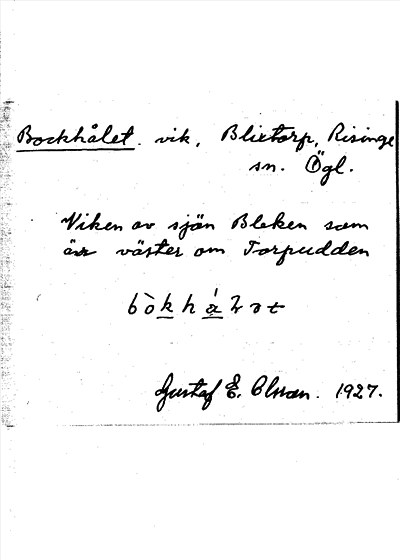 Bockhålet. vik, Blixtorp, Risinge
sn. Ögl.
Viken av sjön Bleken som
är väster om Torpudden
Gustaf E. Olsson. 1927.